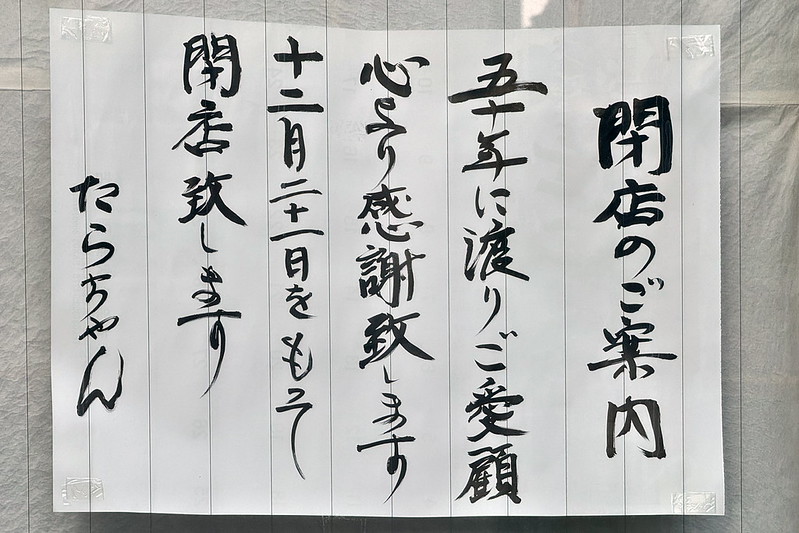 閉店のご案内
五十年に渡りご愛顧
心より感謝致します
十二月二十一日をもって
閉店致します
たらちゃん